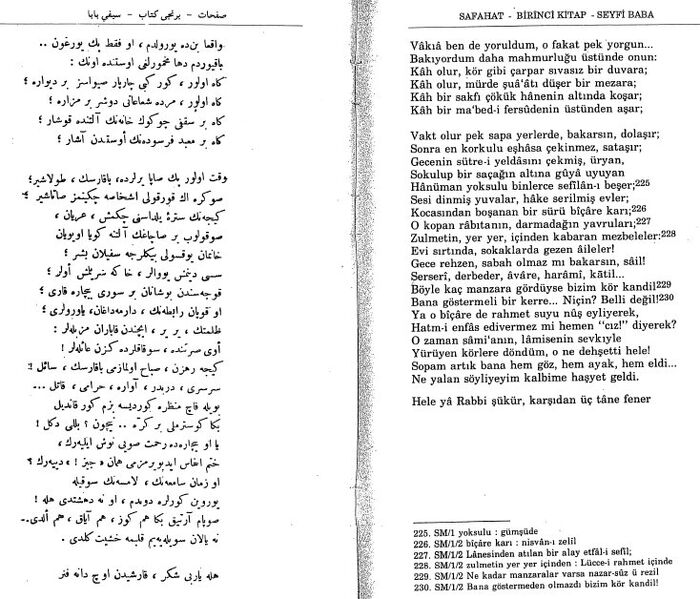 صفحات - برنجى كتاب - سيفى بابا
واقعا بن ده يورولدم، او فقط پك يورغون..
باقيوردم دها مخمورلغى اوستنده اونك:
كاه اولور، كور كبى چارپار صيواسز بر ديواره؛
كاه اولور، مرده شعاعاتى دوشر بر مزاره؛
كاه بر سقفى چوكوك خانه‌نك آلتنده قوشار؛
كاه بر معبد فرسوده‌نك اوستندن آشار؛
وقت اولور پك صاپا يرلرده، باقارسك، طولاشير؛
صوكره اك قورقولى اشخاصه چكينمز صاتاشير؛
كيجه‌نك سترۀ يلداسنى چكمش، عريان،
صوقولوب بر صاچاغك آلتنه كويا اويويان
خانمان يوقسولى بيكلرجه سفيلان بشر؛
سسى دينمش يووالر، خاكه سريلمش أولر؛
قوجه‌سندن بوشانان بر سورى بيچاره قارى؛
او قوپان رابطه‌نك، دارمه‌داغان، ياورولرى؛
ظلمتك، ير ير، ايچندن قاباران مزبله‌لر:
أوى صرتنده، سوقاقلرده كزن عائله‌لر!
كيجه رهزن، صباح اولمازمى باقارسك، سائل!
سرسرى، دربدر، آواره، حرامى، قاتل...
بويله قاچ منظره كورديسه بزم كور قانديل
بكا كوسترملى بر كره.. نيچون؟ بللى دكل!
يا او بيچاره ده رحمت صويى نوش ايليه‌رك،
ختم انفاس ايديويرمزمى همان «جيز!» دييه‌رك؟
او زمان سامعه‌نك، لامسه‌نك سوقيله
يوروين كورلره دوندم، او نه دهشتدى هله!
صوپام آرتيق بكا هم كوز، هم آياق، هم ألدى..
نه يالان سويله‌يه‌يم قلبمه خشيت كلدى.
هله يا ربى شكر، قارشيدن اوچ دانه فنر
SAFAHAT - BİRİNCİ KİTAP - SEYFİ BABA
Vâkıâ ben de yoruldum, o fakat pek yorgun...
Bakıyordum daha mahmurluğu üstünde onun:
Kâh olur, kör gibi çarpar sıvasız bir duvara;
Kâh olur, mürde şuâ'âtı düşer bir mezara;
Kâh bir sakfı çökük hânenin altında koşar;
Kâh bir ma'bed-i fersûdenin üstünden aşar;
Vakt olur pek sapa yerlerde, bakarsın, dolaşır;
Sonra en korkulu eşhâsa çekinmez, sataşır;
Gecenin sütre-i yeldâsını çekmiş, üryan,
Sokulup bir saçağın altına gûyâ uyuyan
Hânüman yoksulu binlerce sefîlân-ı beşer;225
Sesi dinmiş yuvalar, hâke serilmiş evler;
Kocasından boşanan bir sürü bîçâre karı;226
O kopan râbıtanın, darmadağın yavruları;227
Zulmetin, yer yer, içinden kabaran mezbeleler:228
Evi sırtında, sokaklarda gezen âileler!
Gece rehzen, sabah olmaz mı bakarsın, sâil!
Serserî, derbeder, âvâre, harâmî, kātil...
Böyle kaç manzara gördüyse bizim kör kandil229
Bana göstermeli bir kerre... Niçin? Belli değil!230
Ya o bîçâre de rahmet suyu nûş eyliyerek,
Hatm-i enfâs edivermez mi hemen "cız!" diyerek?
O zaman sâmi'anın, lâmisenin sevkıyle
Yürüyen körlere döndüm, o ne dehşetti hele!
Sopam artık bana hem göz, hem ayak, hem eldi...
Ne yalan söyliyeyim kalbime haşyet geldi.
Hele yâ Rabbi şükür, karşıdan üç tâne fener
225. SM/1 yoksulu : gümşüde
226. SM/1/2 bîçâre karı : nisvân-ı zelîl
227. SM/1/2 Lânesinden atılan bir alay etfâl-i sefîl;
228. SM/1/2 zulmetin yer yer içinden : Lücce-i rahmet içinde
229. SM/1/2 Ne kadar manzaralar varsa nazar-sûz ü rezîl
230. SM/1/2 Bana göstermeden olmazdı bizim kör kandil!